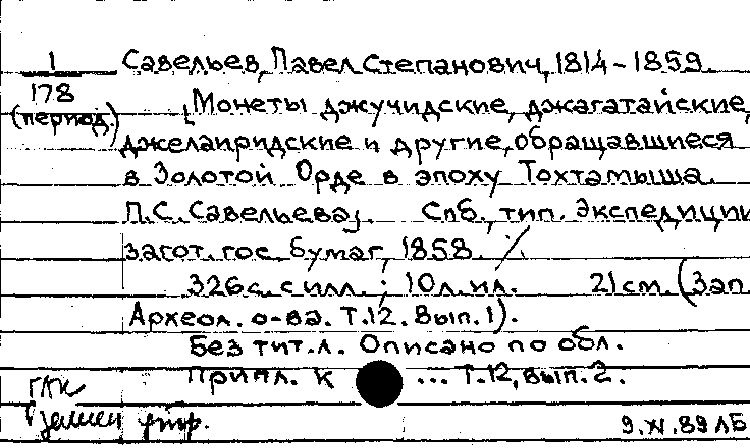 1 Савельев, Павел Степанович, 1814-1859.
178 [Монеты джучидские, джагатайские,
(период.)
джелаиридские и другие, обращавшиеся
в Золотой Орде в эпоху Тохтамыша.
П.С. Савельева]. Спб., тип. Экспедиции
загот. гос. бумаг, 1858.
326с. с илл.; 10л. ил. 21см. (Зап.
Археол. о-ва. Т.12. Вып.1).
Без тит.л. Описано по обл.
Припл. к ... Т.12, вып.2.
ГАК
9.XI.89 ЛБ